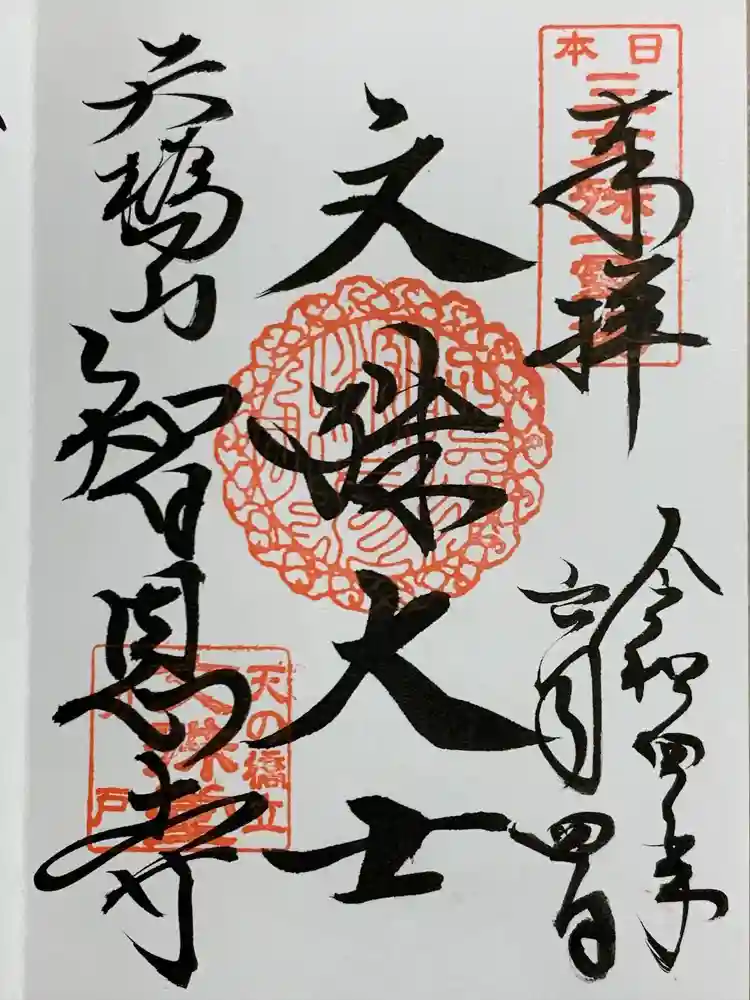 奉拝
令和四年
六月四日
日本
三文殊
文殊大士
天橋山
智恩寺
天の橋立
文殊堂
戸